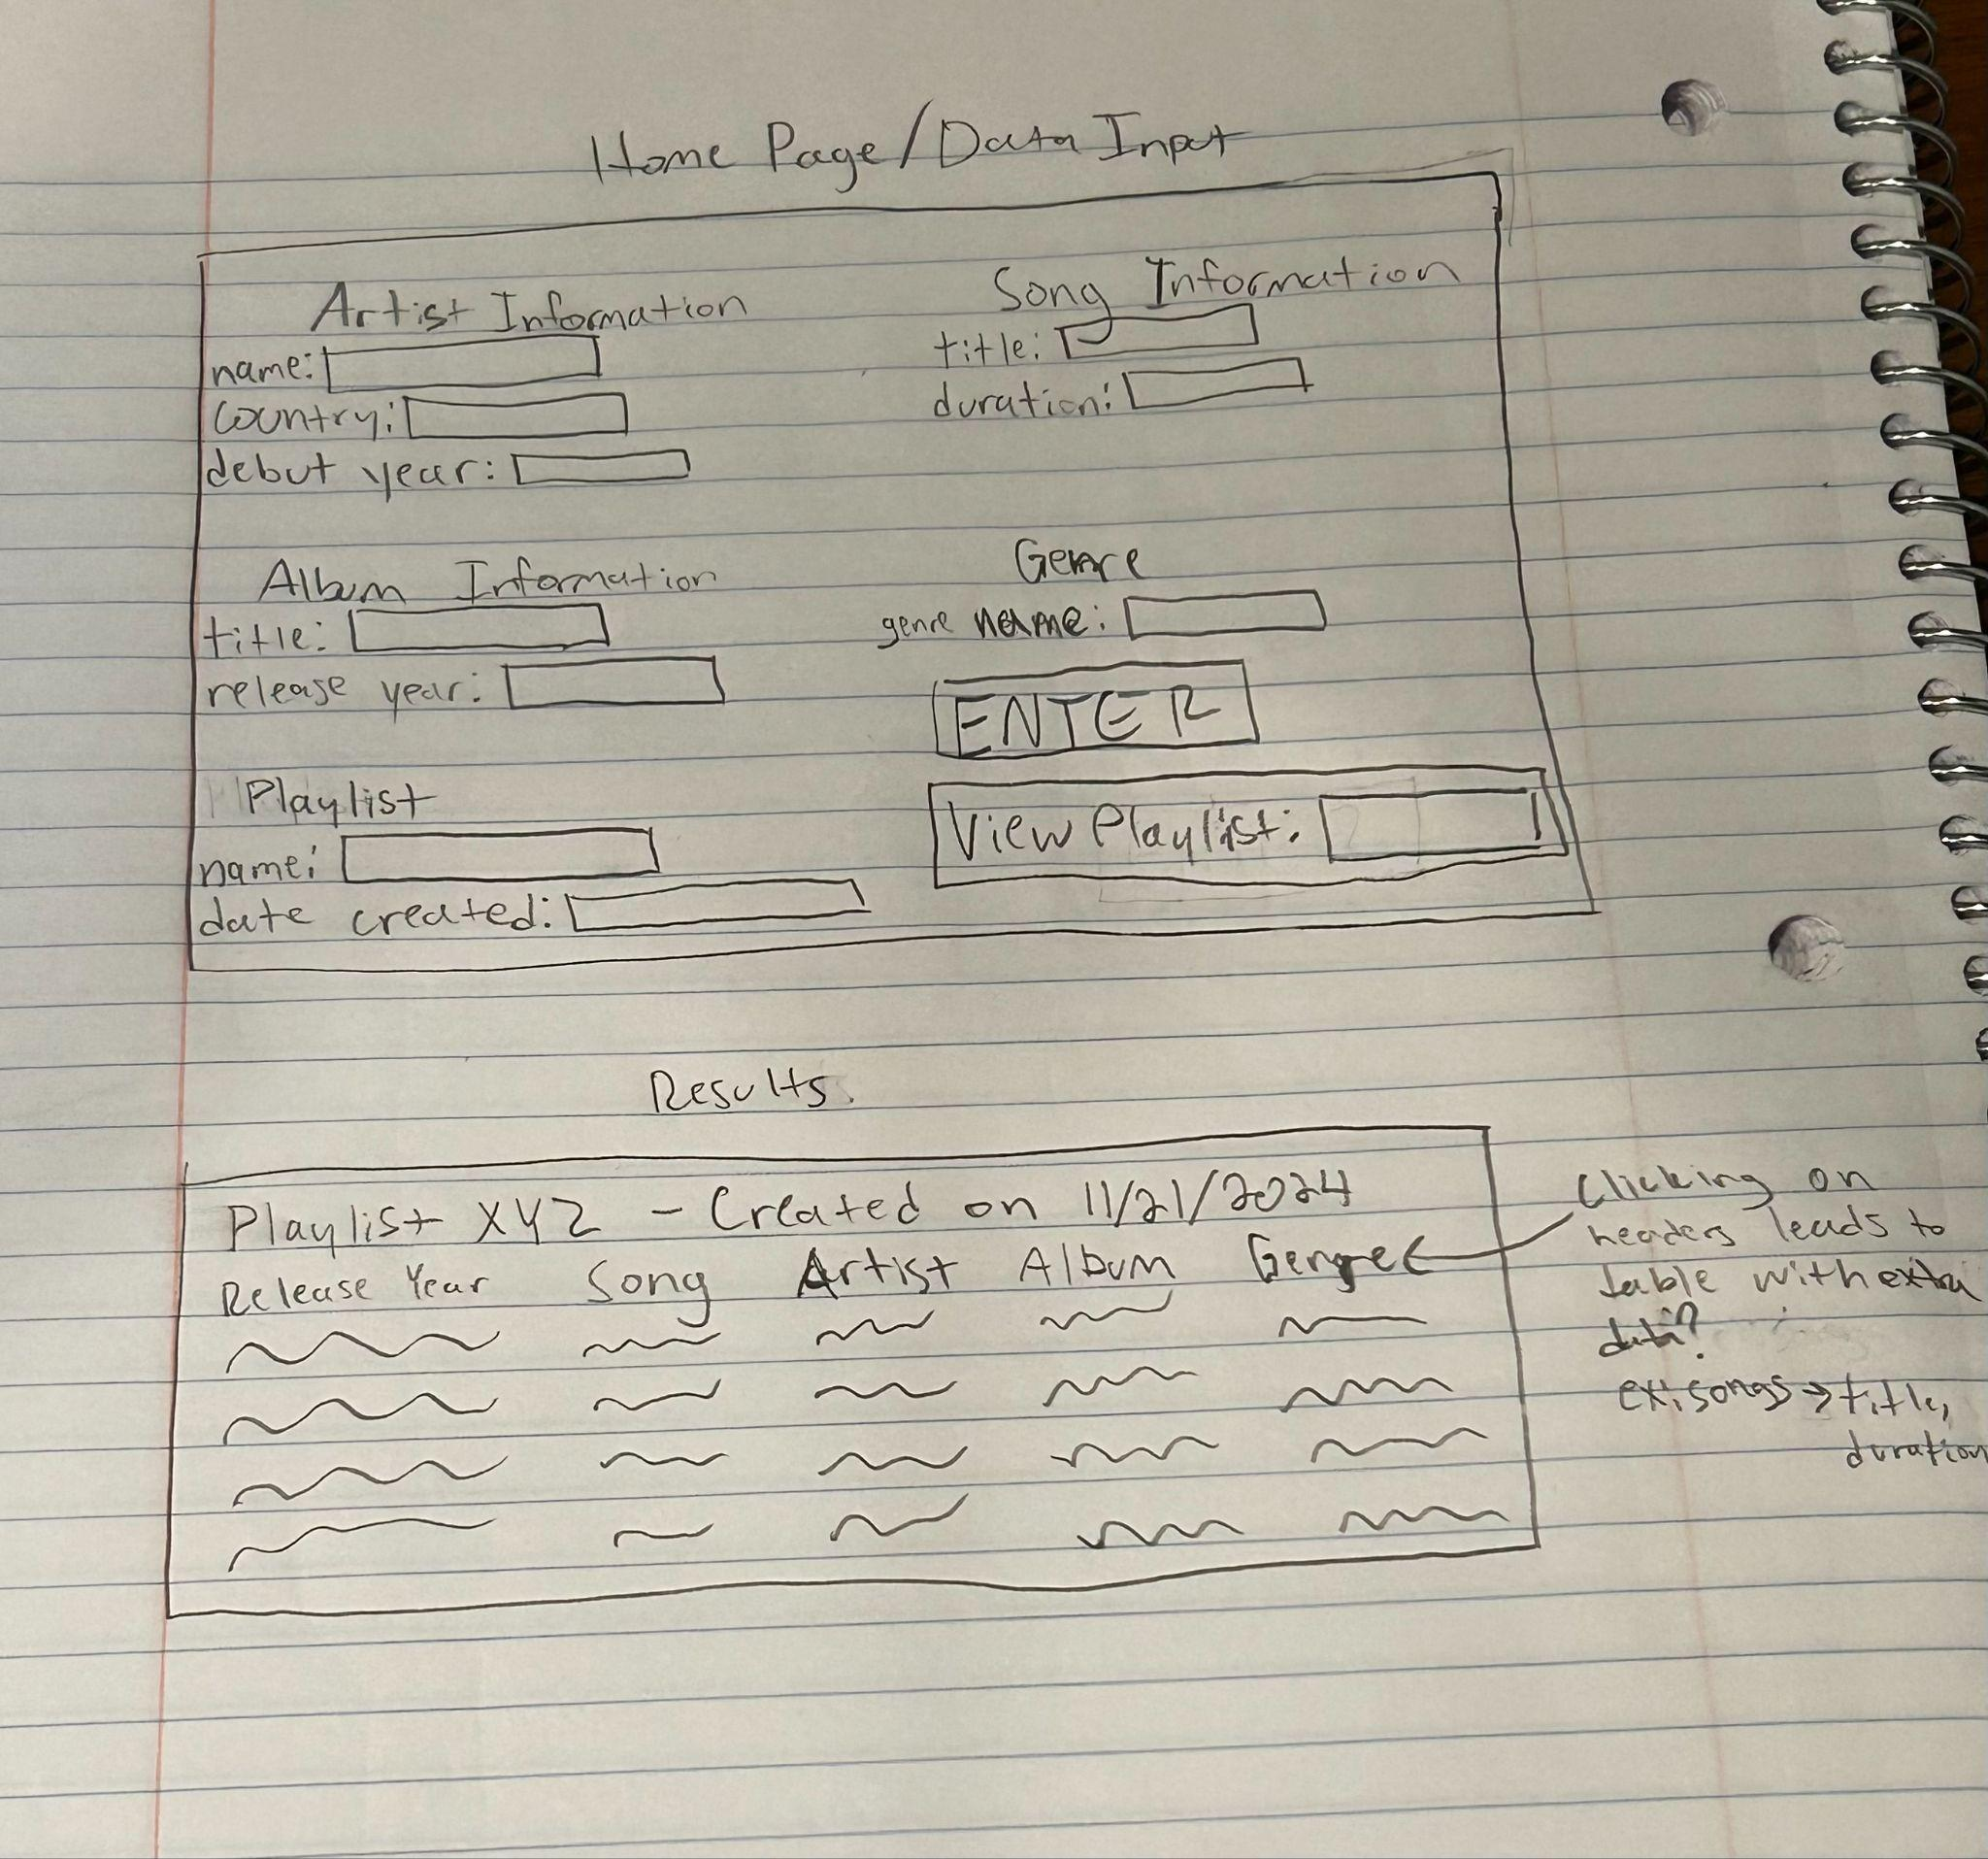 Home Page/Data Input
Artist Information
name:
country:
debut year:
Song Information
title:
duration:
Album Information
title:
release year:
Genre
genre name:
ENTER
Playlist
name:
date created:
View Playlist:
Results.
Playlist XYZ - Created on 11/21/2024
Release Year Song Artist Album Genre
Clicking on
headers leads to
table with extra
data?
ex: songs → title,
duration